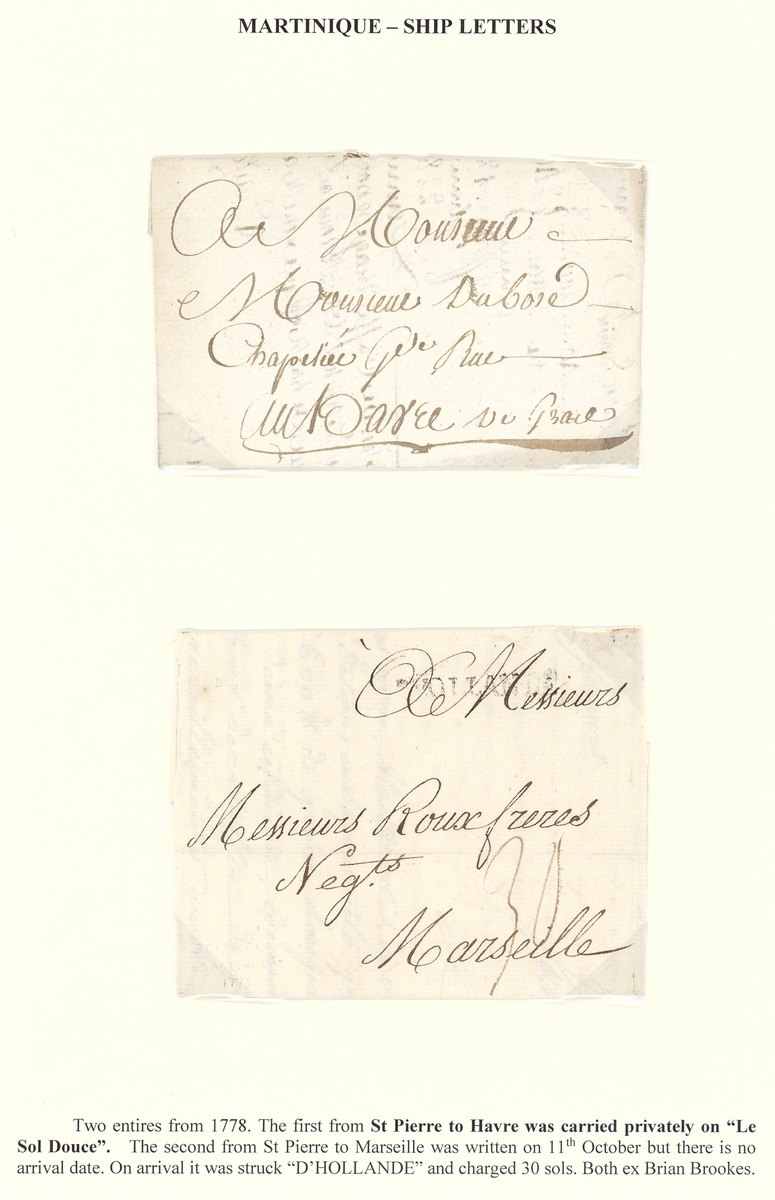 MARTINIQUE – SHIP LETTERS
A Monsieur
Monsieur Dubosc
Chapelier Gde Rue
Au Havre De Grace
D'HOLLANDE
À Messieurs
Messieurs Roux freres
Negts
30
Marseille
Two entires from 1778. The first from St Pierre to Havre was carried privately on “Le
Sol Douce”. The second from St Pierre to Marseille was written on 11th October but there is no
arrival date. On arrival it was struck “D’HOLLANDE” and charged 30 sols. Both ex Brian Brookes.